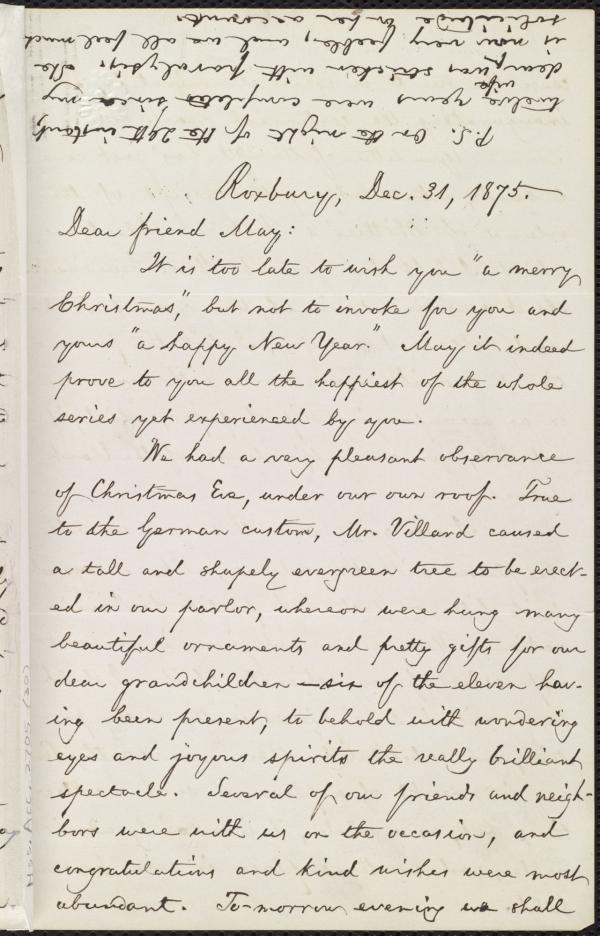 P.S. On the night of the 29th instant,
twelve years were completed since my
dear wife was stricken with paralysis. She
is now very feeble, and we all feel much
solicitude on her account.
Roxbury, Dec. 31, 1875.
Dear friend May:
It is too late to wish you "a merry
Christmas," but not to invoke for you and
yours "a happy New Year." May it indeed
prove to you all the happiest of the whole
series yet experienced by you.
We had a very pleasant observance
of Christmas Eve, under our own roof. True
to the German custom, Mr. Villard caused
a tall and shapely evergreen tree to be erect-
ed in our parlor, whereon were hung many
beautiful ornaments and pretty gifts for our
dear grandchildren—six of the eleven hav-
ing been present, to behold with wondering
eyes and joyous spirits the really brilliant
spectacle. Several of our friends and neigh-
bors were with us on the occasion, and
congratulations and kind wishes were most
abundant. To-morrow evening we shall